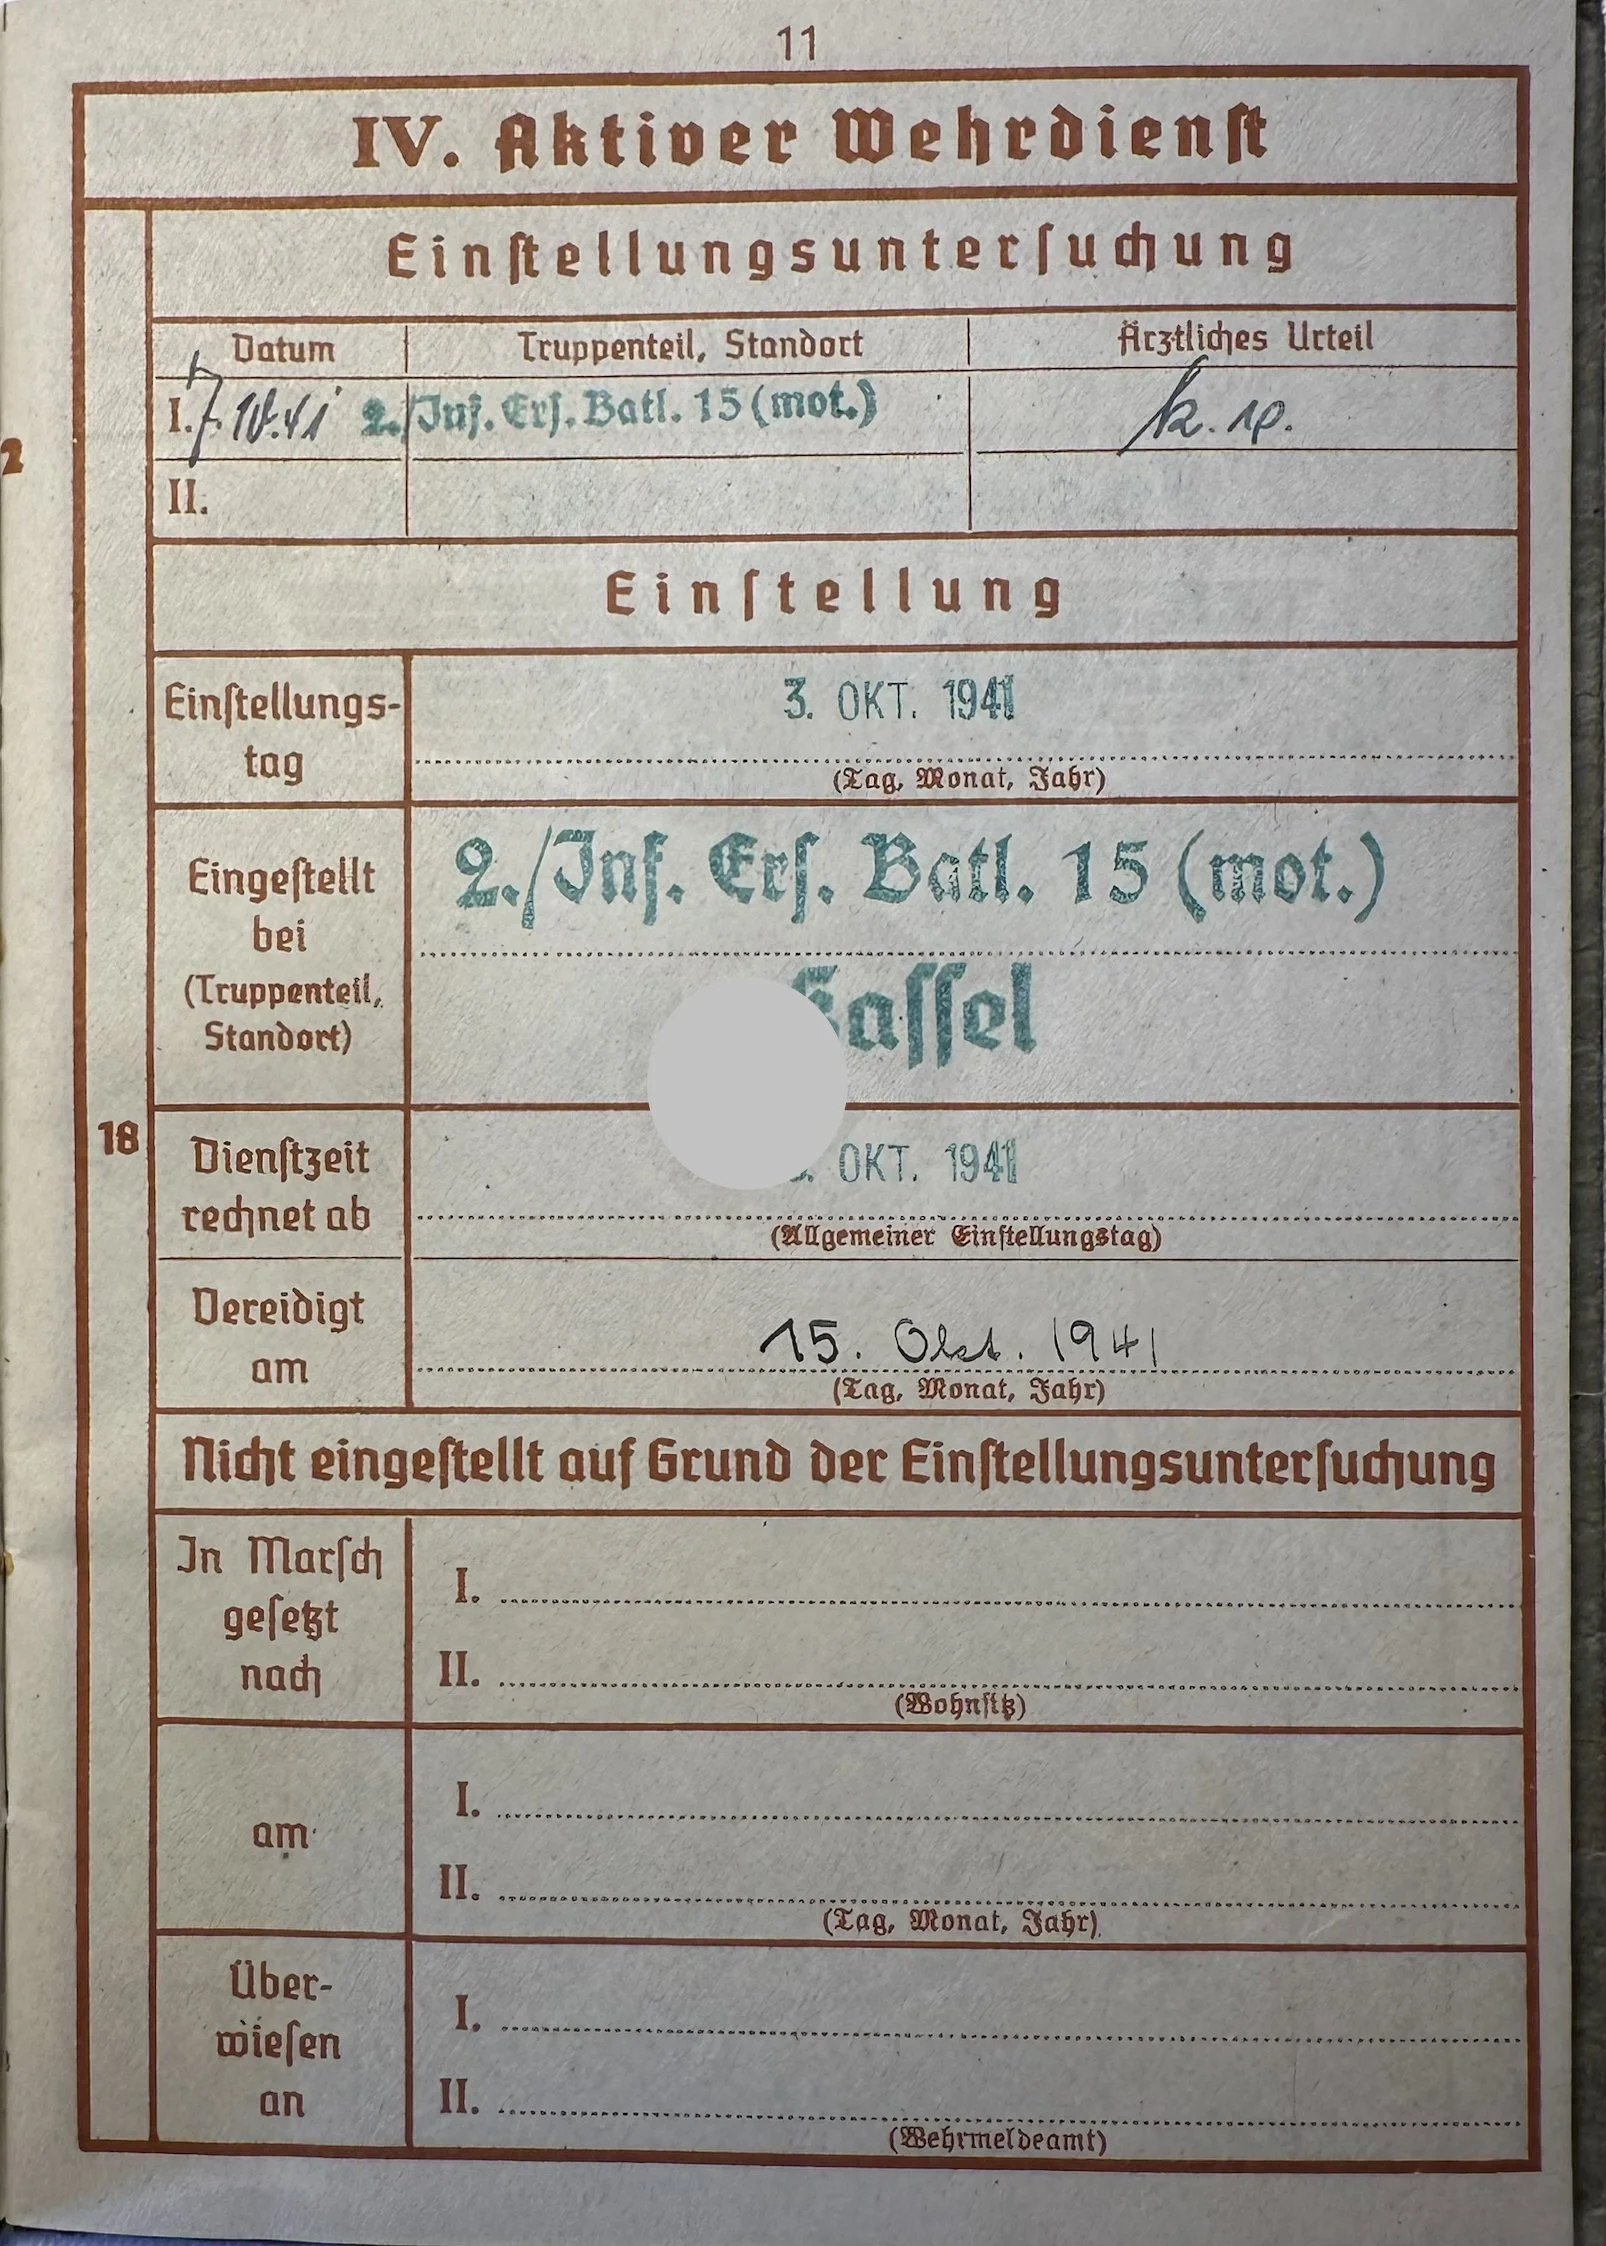 11
IV. Aktiver Wehrdienst
Einstellungsuntersuchung
Datum Truppenteil, Standort Ärztliches Urteil
I. 7.10.41 2./Inf. Ers. Batl. 15 (mot.)
2
II.
Einstellung
Einstellungs-
tag
3. OKT. 1941
(Tag, Monat, Jahr)
Eingestellt
bei
(Truppenteil,
Standort)
2./Inf. Ers. Batl. 15 (mot.)
Kassel
18
Dienstzeit
rechnet ab
. OKT. 1941
(Allgemeiner Einstellungstag)
Vereidigt
am
15. Okt. 1941
(Tag, Monat, Jahr)
Nicht eingestellt auf Grund der Einstellungsuntersuchung
In Marsch
gesetzt
nach
I.
II.
(Wohnsitz)
am
I.
II.
(Tag, Monat, Jahr)
Über-
wiesen
an
I.
II.
(Wehrmeldeamt)